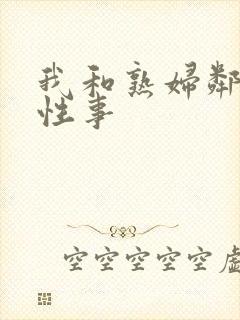 我和熟妇鄰
性事
空空空空空虛